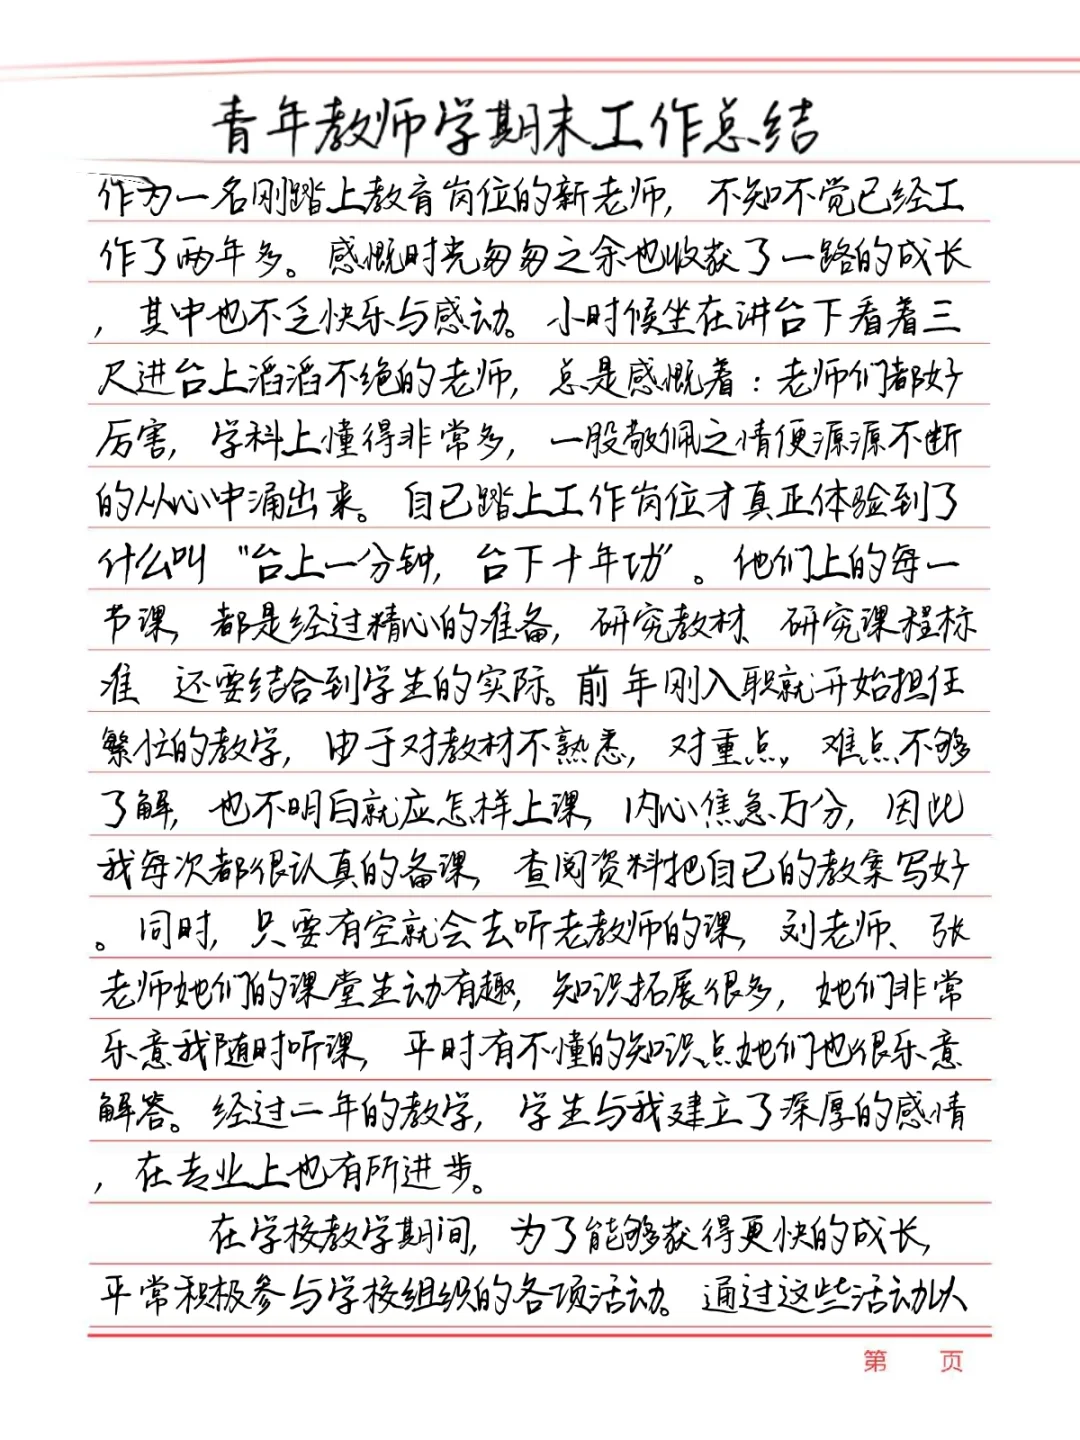 青年教师学期末工作总结
作为一名刚踏上教育岗位的新老师，不知不觉已经工
作了两年多。感慨时光匆匆之余也收获了一路的成长
，其中也不乏快乐与感动。小时候坐在讲台下看着三
尺进台上滔滔不绝的老师，总是感慨着：老师们都好
厉害，学科上懂得非常多，一股敬佩之情便源源不断
的从心中涌出来。自己踏上工作岗位才真正体验到了
什么叫“台上一分钟，台下十年功”。他们上的每一
节课，都是经过精心的准备，研究教材、研究课程标
准 还要结合到学生的实际。前年刚入职就开始担任
繁忙的教学，由于对教材不熟悉，对重点，难点不够
了解，也不明白就应怎样上课，内心焦急万分，因此
我每次都很认真的备课，查阅资料把自己的教案写好
。同时，只要有空就会去听老教师的课，刘老师、张
老师她们的课堂生动有趣，知识拓展很多，她们非常
乐意我随时听课，平时有不懂的知识点她们也很乐意
解答。经过二年的教学，学生与我建立了深厚的感情
，在专业上也有所进步。
在学校教学期间，为了能够获得更快的成长，
平常积极参与学校组织的各项活动。通过这些活动以
第 页